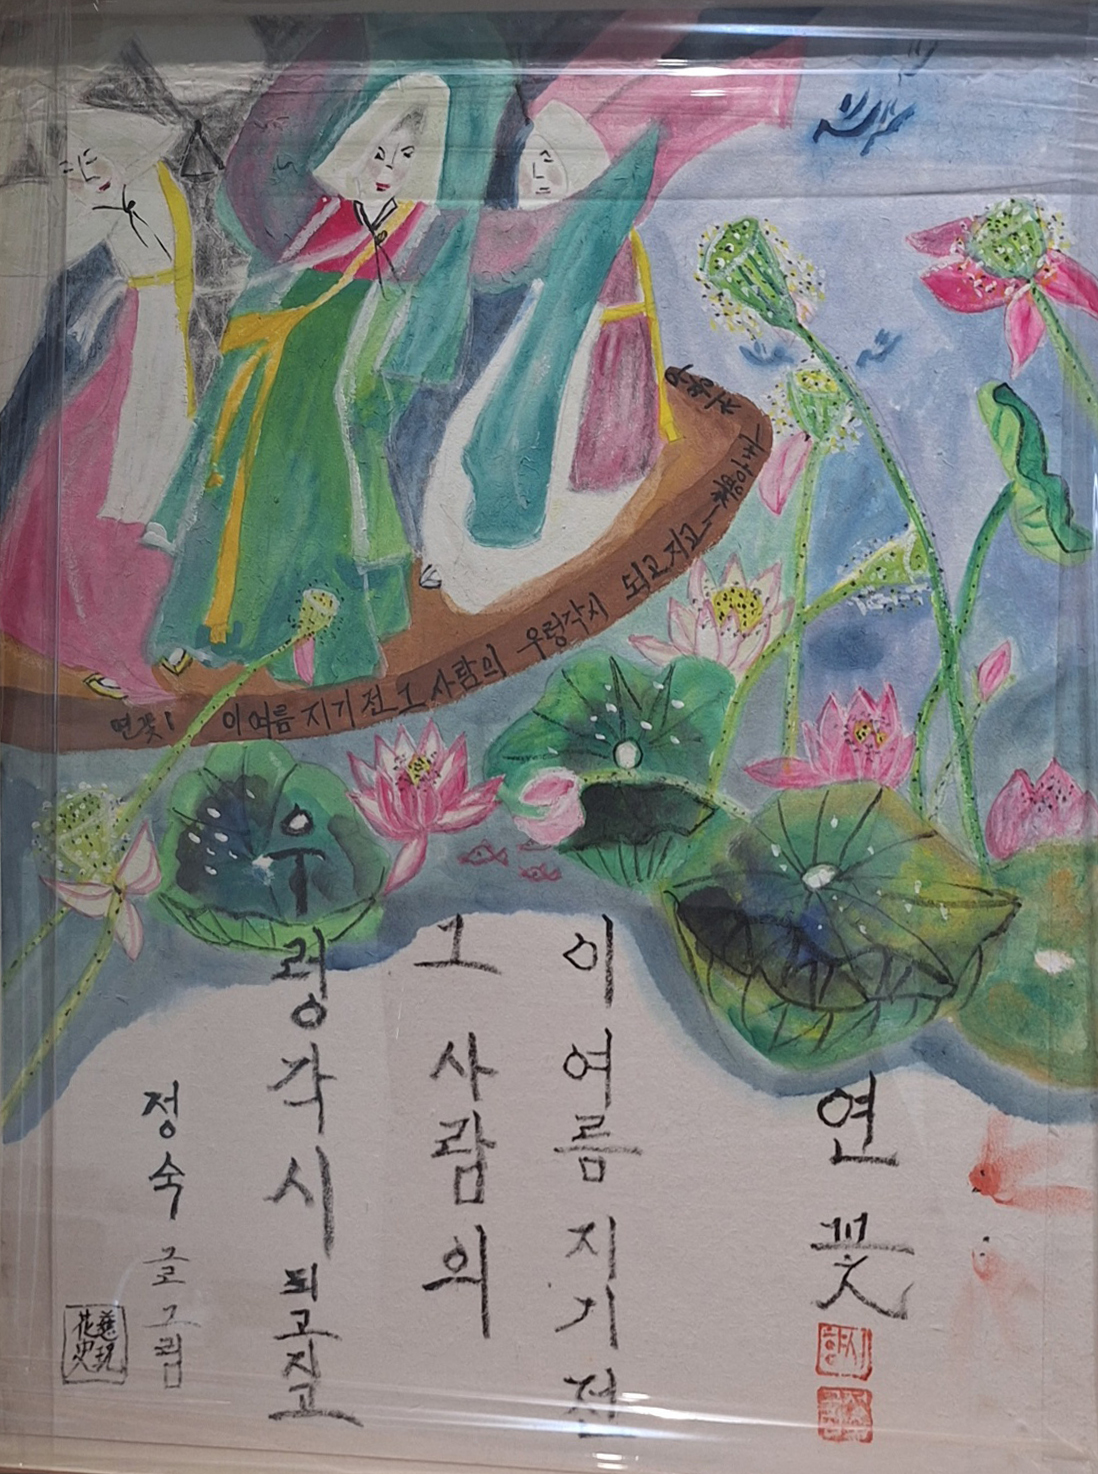 연꽃! 이 여름 지기 전 그 사람의 우렁각시 되고지고
연꽃
이 여름 지기 전
그 사람의
우렁각시 되고지고
정숙 글 그림